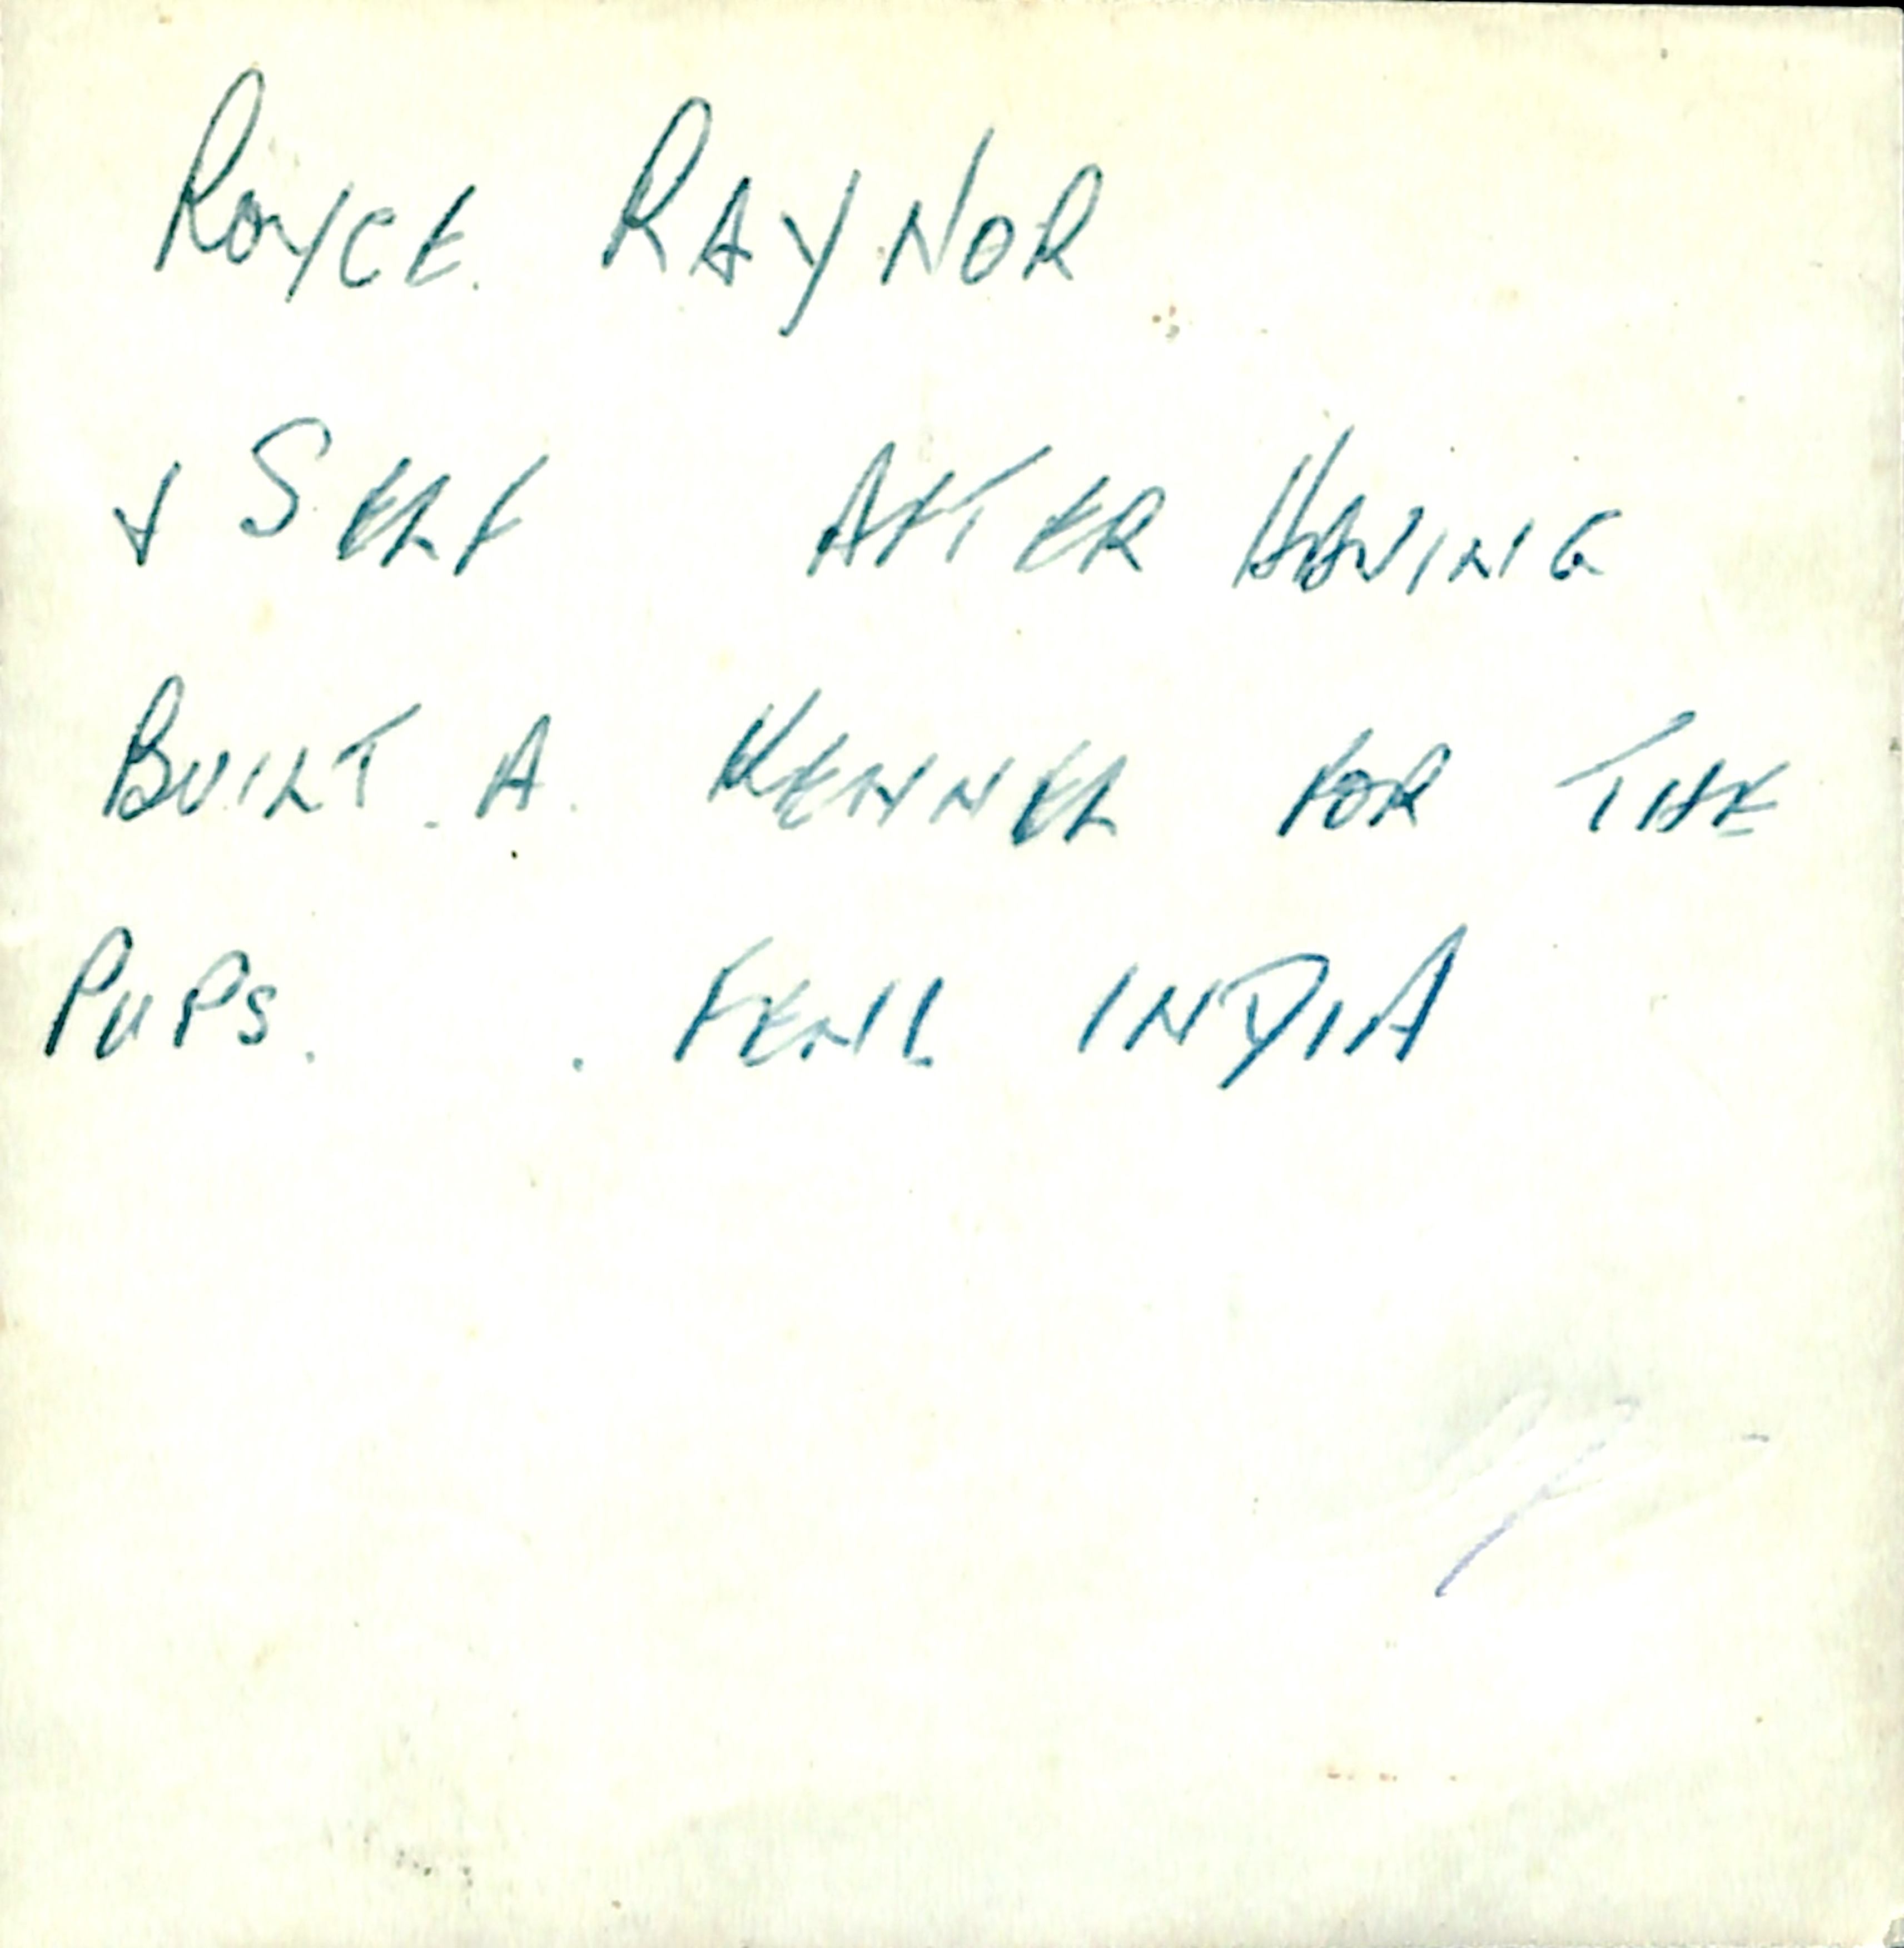 ROYCE. RAYNOR
& SELF AFTER HAVING
BUILT. A. KENNEL FOR THE
PUPS. . FENI. INDIA